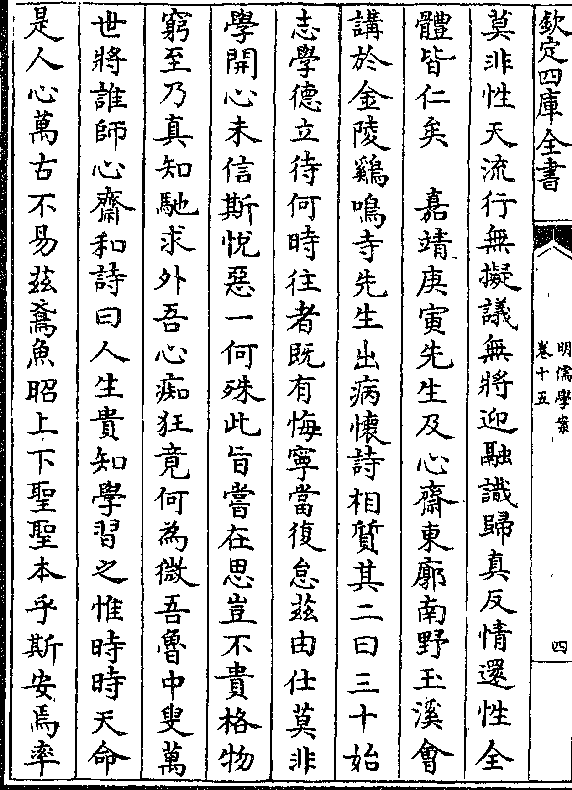 欽定四庫全書
明儒學案
卷十五
四
莫非性天流行無擬議無將迎融識歸真反情還性全
體皆仁矣　嘉靖庚寅先生及心齋東廓南野玉溪會
講於金陵鷄鳴寺先生出病懷詩相質其二曰三十始
志學德立待何時往者既有悔寧當復怠茲由仕莫非
學開心未信斯悅惡一何殊此旨嘗在思豈不貴格物
窮至乃真知馳求外吾心痴狂竟何為微吾魯中叟萬
世將誰師心齋和詩曰人生貴知學習之惟時時天命
是人心萬古不易茲鳶魚昭上下聖聖本乎斯安焉率